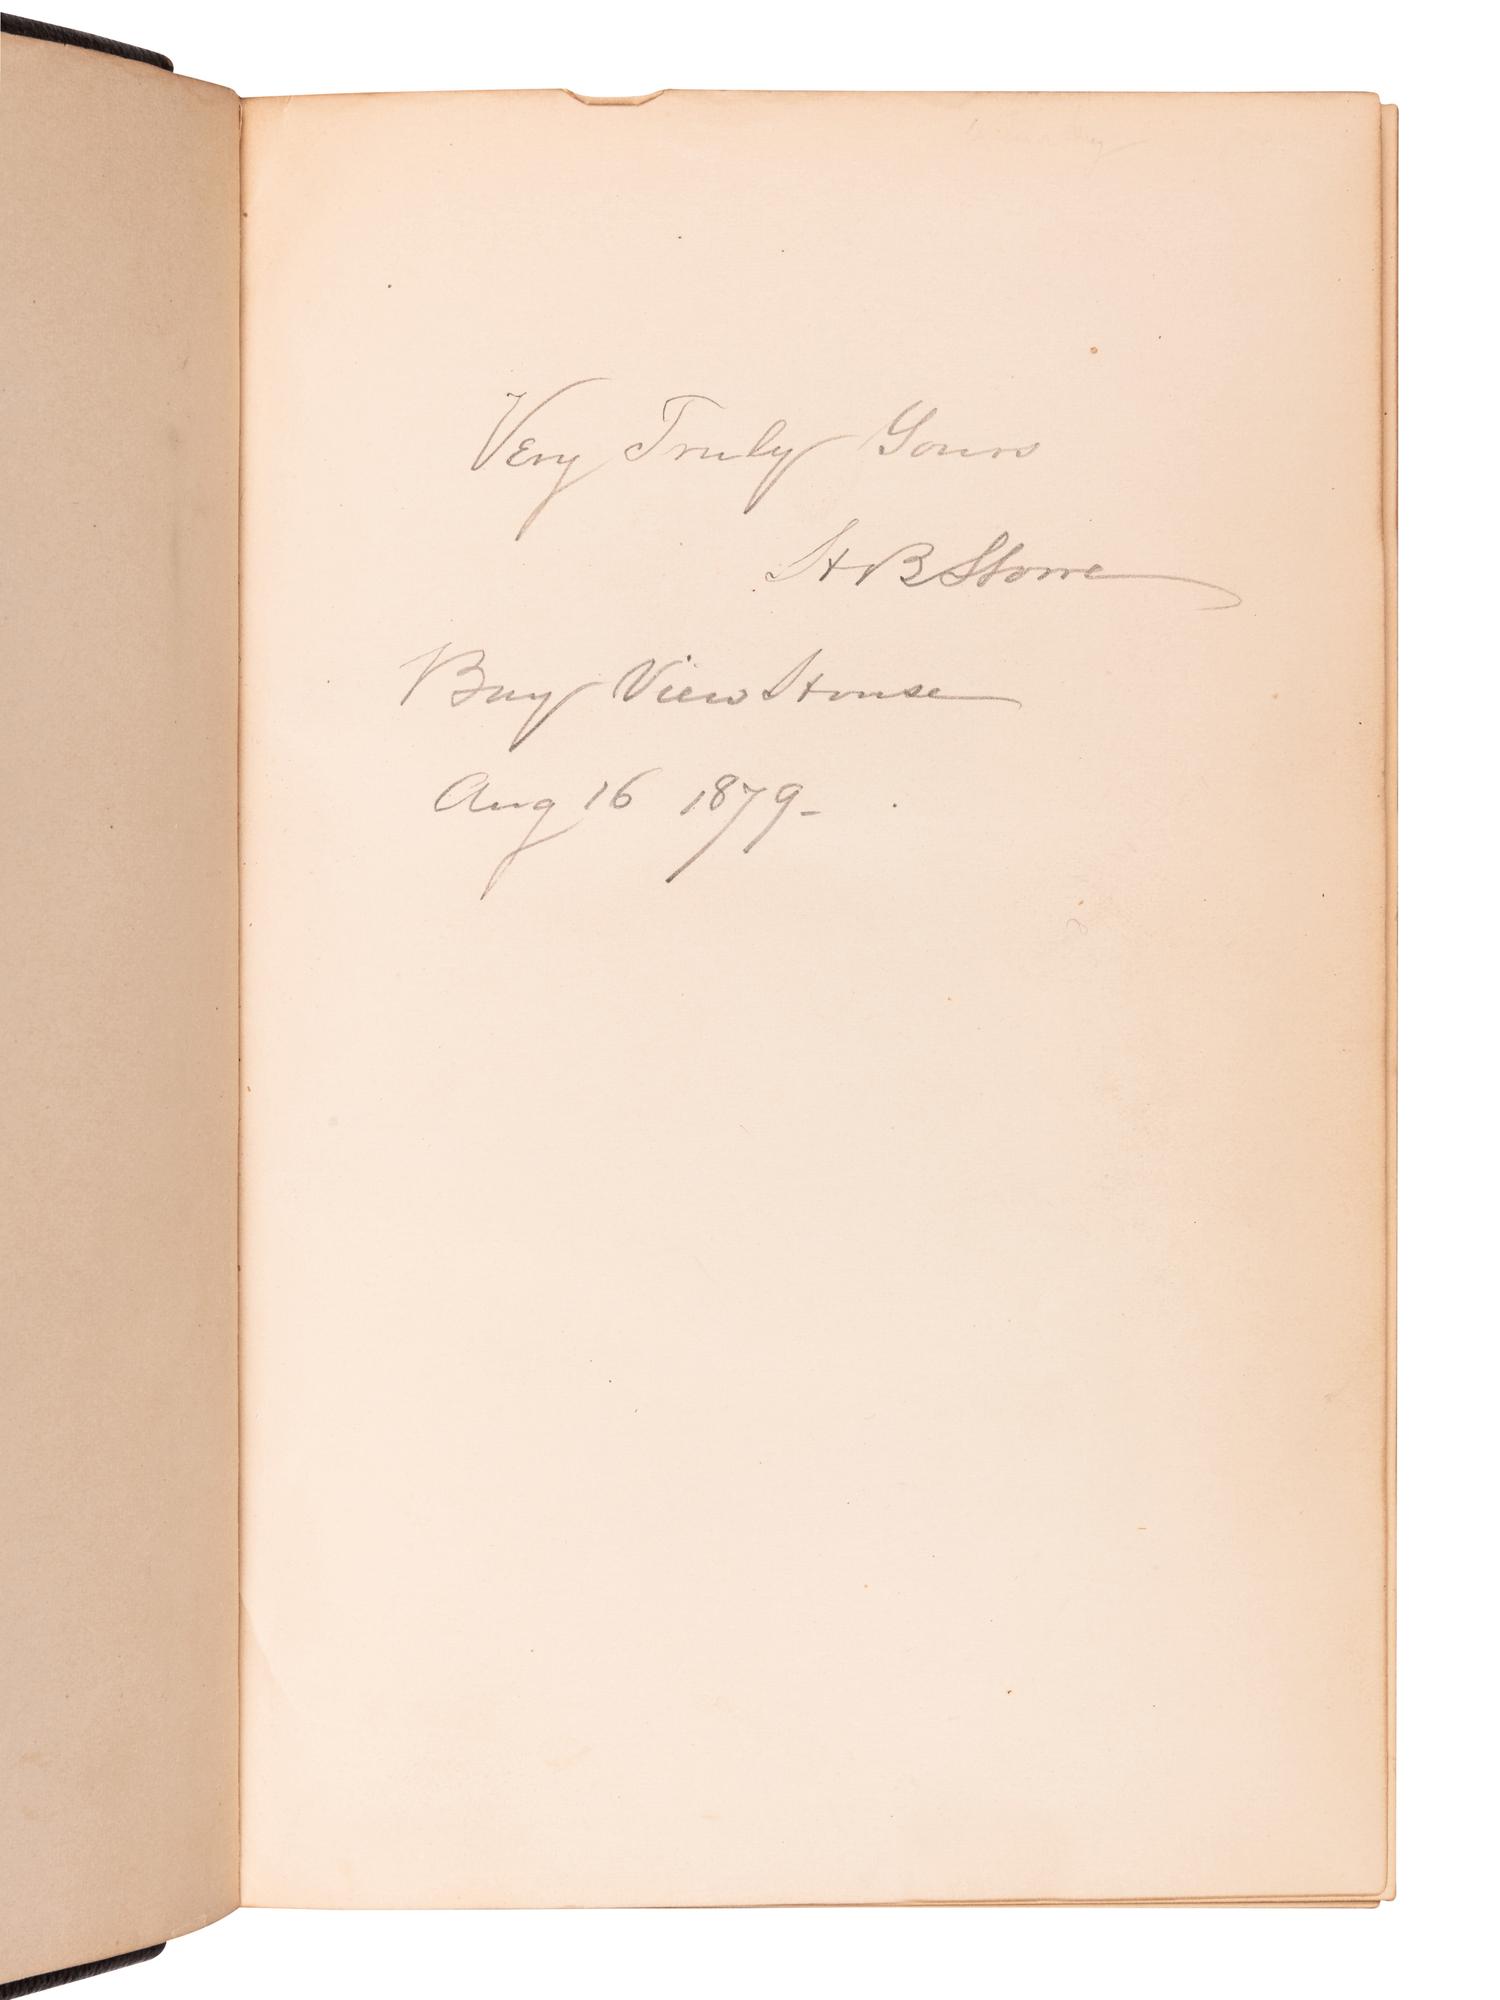 Very Truly Yours
H B Stowe
Bay View House
Aug 16 1879-